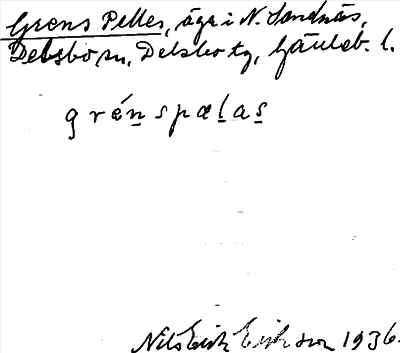 Grens Pelles, äga i N. Sandnäs,
Delsbo sn, Delsbo tg, Gävleb. l.
grǽn̲spæl̲as̲
Nils Erik Eriksson 1936.